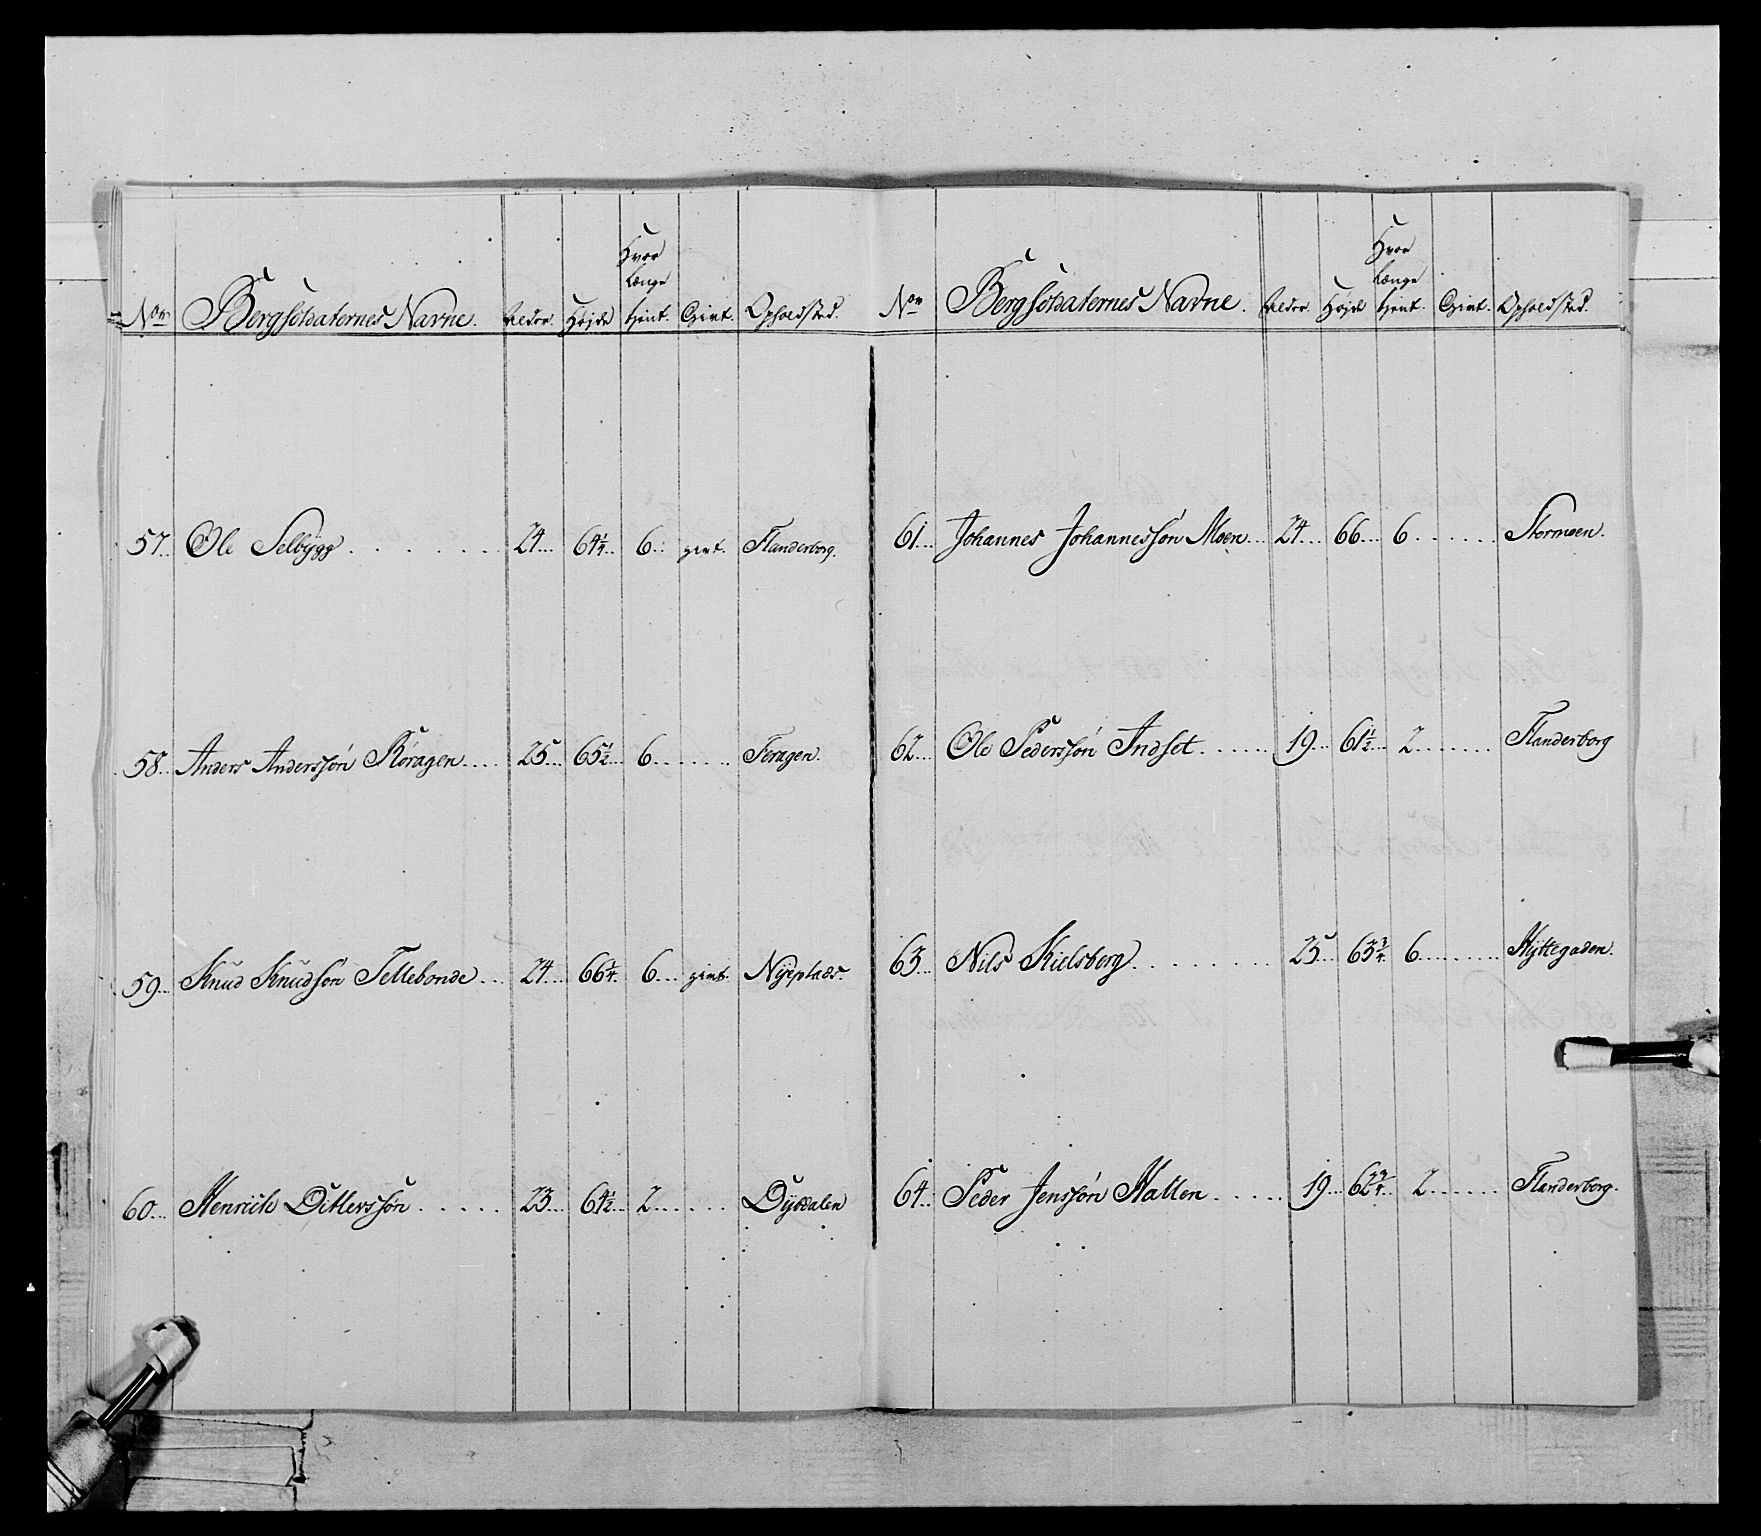 Nor Bergsoldaternes Navne. Alder. Højde Hvor længe tjent. Givt. Opholdsted.
57. Ole Selbygg . . . . . . . 24... 64¼.. 6.. givt. Flanderborg.
58.. Anders Anderssøn Røragen.... 25... 65½... 6....... Feragen.
59.. Knud Knudsøn Tellebonde... 24... 66¾.. 6... givt. Nyeplads.
60... Henrich Ditlevssøn..... 23... 64½... 2...... Dybdalen
Nor Bergsoldaternes Navne. Alder. Højde Hvor længe tjent. Givt. Opholdsted.
61... Johannes Johannessøn Moen... 24.... 66... 6....... Stormoen.
62.... Ole Pederssøn Indset...... 19... 61½... 2....... Flanderborg
63... Nils Kielsberg......... 25... 63¾.. 6........ Hyttegaden.
64.. Peder Jenssøn Hallen..... 19... 62¾... 2...... Flanderborg.